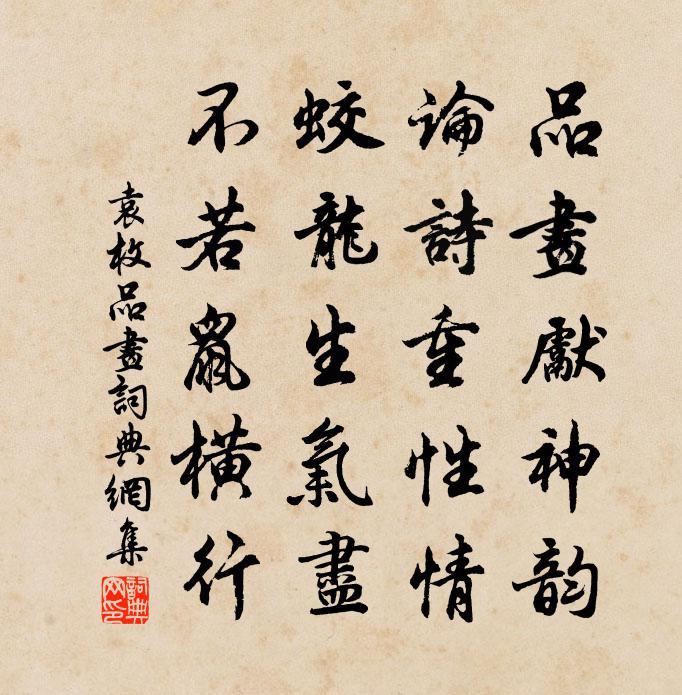 品畫獻神韵
論詩重性情
蛟龍生氣盡
不若鼠橫行
袁枚品畫詞典網集
詞典网印